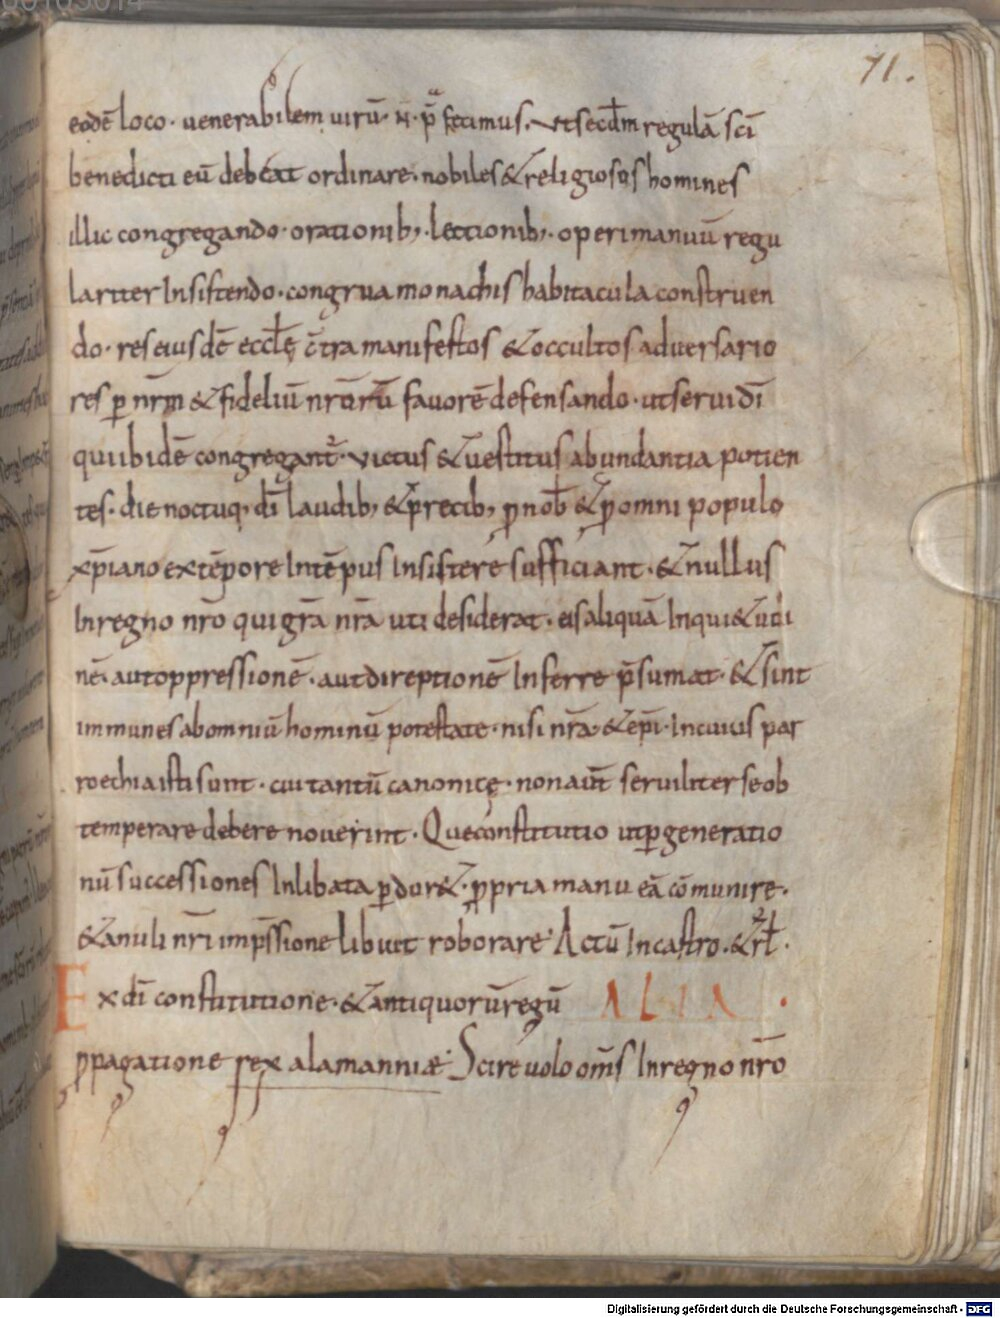 71.
eodē loco. uenerabilem uirū. N. p̄fecimus. Vt secdm̄ regulā sc̄i
benedicti eū debeat ordinare. nobiles & religiosos homines
illic congregando. orationib; lectionib; operi manuū regu
lariter Insistendo. congrua monachis habitacula construen
do. res eiusdē eccl̄ę c̄tra manifestos & occultos aduersario
res p nr̄m & fideliū nr̄orū fauorē defensando. ut serui dī
qui ibidē congregant̄. uictus & uestitus abundantia potien
tes. die noctuq; dī laudib; & p̄recib; p nob̄ & p omni populo
xp̄iano ex tēpore In tēpus Insistere sufficiant. & nullus
In regno nr̄o qui gr̄a nr̄a uti desiderat. eis aliquā Inqui&udi
nē. aut oppressionē. aut direptionē Inferre p̄sumat. & sint
immunes ab omniū hominū potestate. nisi nr̄a. & ep̄i. In cuius par
roechia isti sunt. cui tantū canonicę. non aūt seruiliter se ob
temperare debere nouerint. Que constitutio ut p generatio
nū successiones Inlibata pdur&. ppria manu eā cōmunire.
& anuli nr̄i imp̄ssione libuit roborare. Actū In castro. & rl̄.
Ex dī constitutione. & antiquorū regū ALIA .
ppagatione rex alamanniæ. Scire uolo om̄s In regno nr̄o
Digitalisierung gefördert durch die Deutsche Forschungsgemeinschaft - DFG